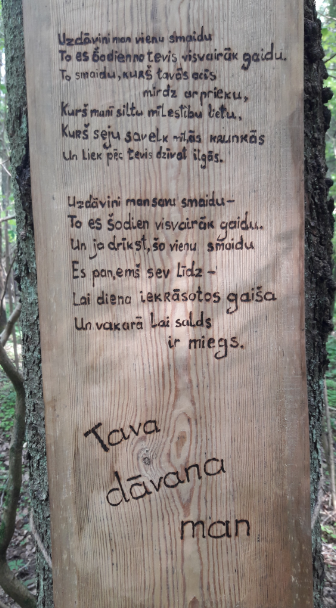 Uzdāvini man vienu smaidu
To es šodien no tevis visvairāk gaidu.
To smaidu, kurš tavās acīs
mirdz ar prieku,
Kurš mani siltu mīlestību lietu,
Kurš seju savelk mīļās krunkās
Un liek pēc tevis dzīvot ilgās.
Uzdāvini man savu smaidu–
To es šodien visvairāk gaidu.
Un ja drīkst, šo vienu smaidu
Es paņemš sev līdz –
Lai diena iekrāsotos gaiša
Un vakarā lai salds
ir miegs.
Tava
dāvana
man